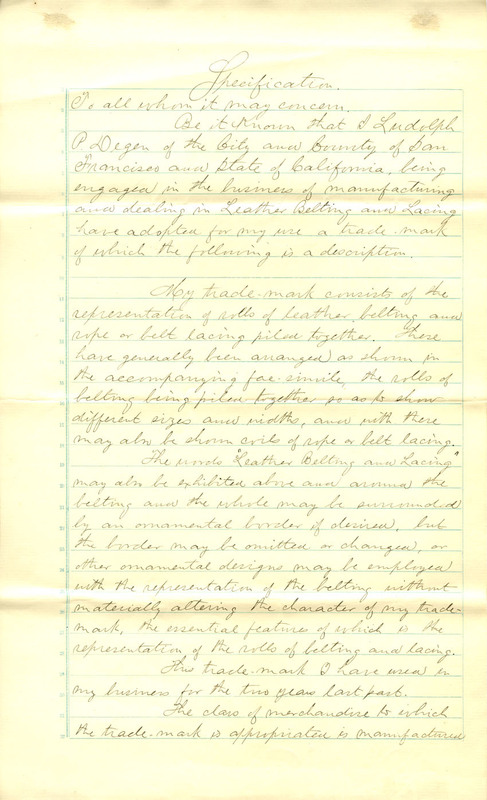 Specification.
To all whom it may concern.
Be it Known that I Ludolph
P Degen of the City and County of San
Francisco and State of California, being
engaged in the business of manufacturing
and dealing in Leather Belting and Lacing
have adopted for my use a trade-mark
of which the following is a description.
My trade-mark consists of the
representation of rolls of leather belting and
rope or belt lacing piled together. These
have generally been arranged as shown in
the accompanying fac-simile, the rolls of
belting being piled together so as to show
different sizes and widths, and with these
may also be shown coils of rope or belt lacing.
The words "Leather Belting and Lacing"
may also be exhibited above and around the
belting and the whole may be surrounded
by an ornamental border if desired, but
the border may be omitted or changed, or
other ornamental designs may be employed
with the representation of the belting without
materially altering the character of my trade-
mark, the essential features of which is the
representation of the rolls of belting and lacing.
This trade-mark I have used in
my business for the two years last past.
The class of merchandise to which
the trade-mark is appropriated is manufactured